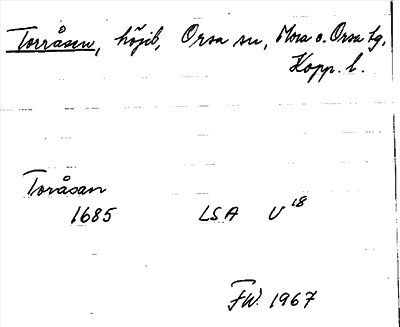 Torråsen, höjd, Orsa sn, Mora o. Orsa tg.
Kopp. l.
Toråsan
1685 LSA U 18
FW. 1967